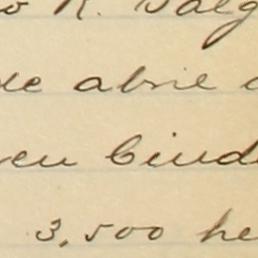 o R. Salg
de abril d
en Ciud
3,500 he